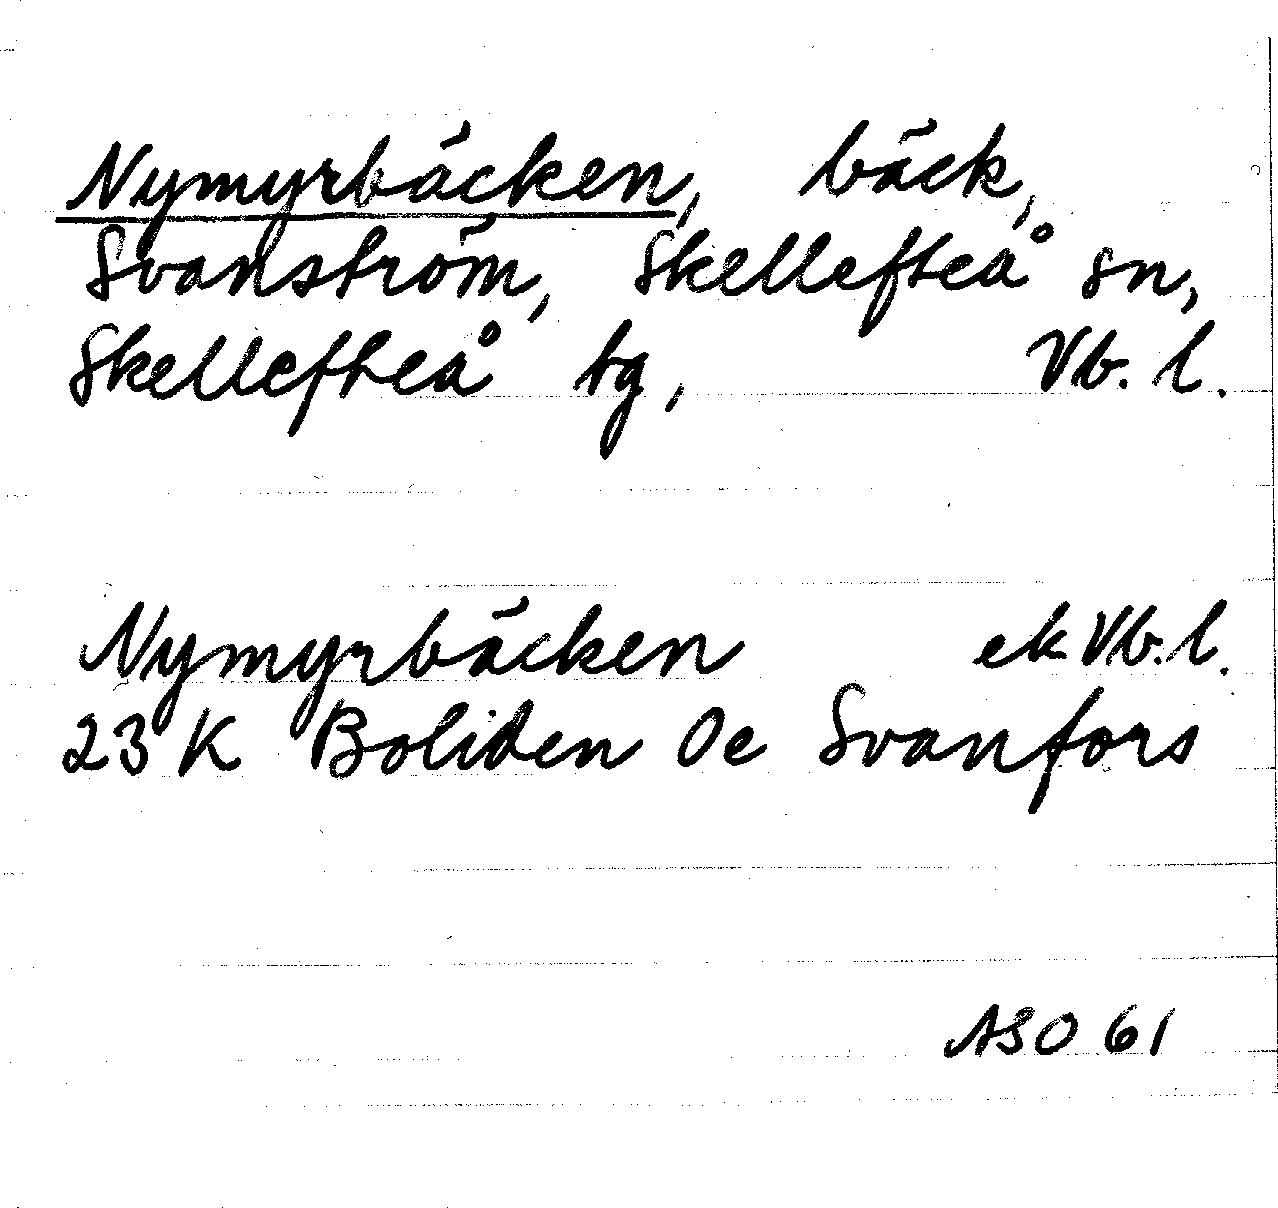 Nymyrbäcken, bäck,
Svanström, Skellefteå sn,
Skellefteå tg, Vb. l.
Nymyrbäcken ek Vb. l.
23 K Boliden 0e Svanfors
ASO 61